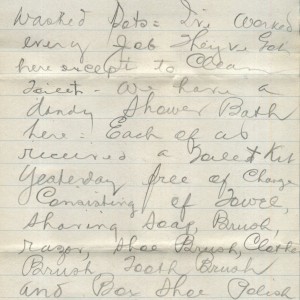 washed Pots = I've worked
every Job They've Got
here except to Clean
Toilet - we have a
dandy Shower Bath
here - Each of us
received a Toilet Kit
Yesterday free of Charge
Consisting of Towel,
Shaving Soap, Brush,
razor, Shoe Brush, Clothes
Brush, Tooth Brush
and Box Shoe Polish